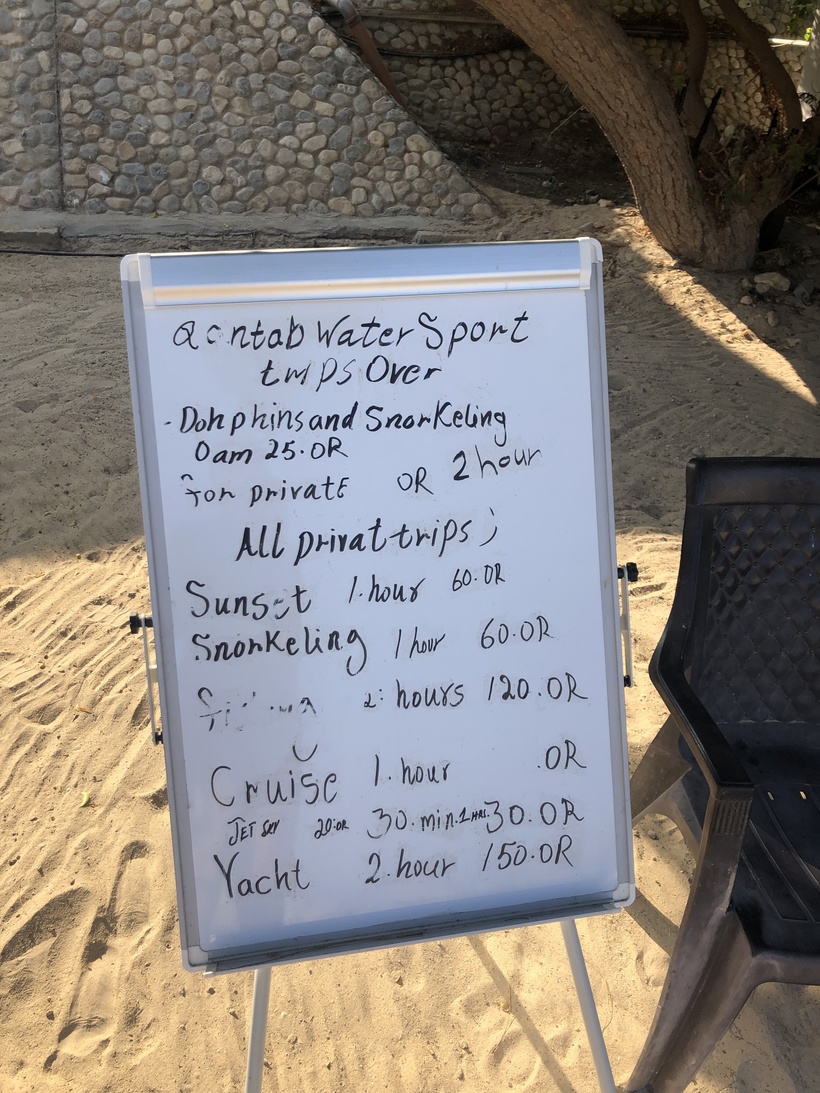 Qantab Water Sport
trips Over
- Dohphins and Snorkeling
0am 25.OR
for private OR 2 hour
All privat trips ;
Sunset 1.hour 60.OR
Snorkeling 1 hour 60.OR
2: hours 120.OR
Cruise 1.hour .OR
JET SKY 20.OR 30.min.1HRS.30.OR
Yacht 2.hour 150.OR